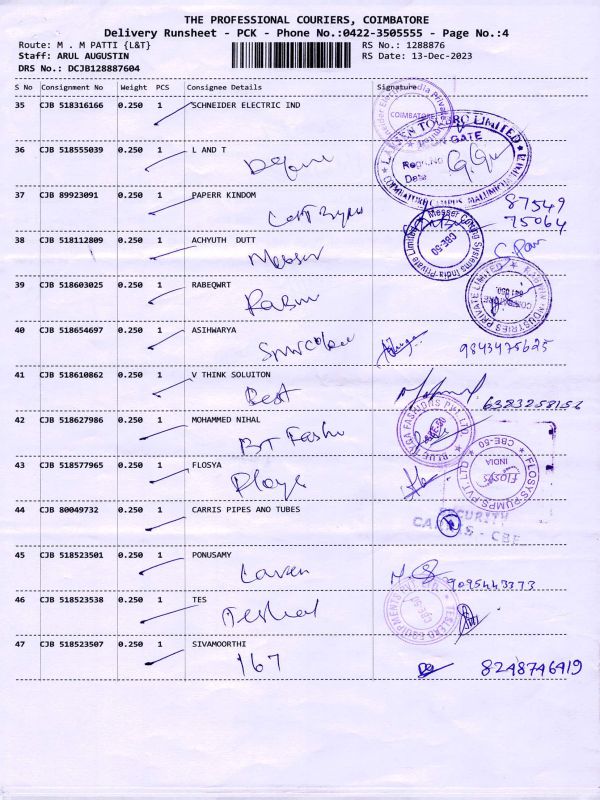 THE PROFESSIONAL COURIERS, COIMBATORE
Delivery Runsheet - PCK - Phone No.:0422-3505555 - Page No.:4
Route: M . M PATTI {L&T}
RS No.: 1288876
Staff: ARUL AUGUSTIN
RS Date: 13-Dec-2023
DRS No.: DCJB128887604
S No Consignment No Weight PCS Consignee Details Signature
35 CJB 518316166 0.250 1 SCHNEIDER ELECTRIC IND
COIMBATORE
36 CJB 518555039 0.250 1 L AND T
LARSEN TOUBRO LIMITED
GATE
Regn.No
Date
37 CJB 89923091 0.250 1 PAPERR KINDOM
87549
75064
38 CJB 518112809 0.250 1 ACHYUTH DUTT
Messer
Messer Cutting Systems India Private Limited
CBE-50
39 CJB 518603025 0.250 1 RABEQWRT
INDUSTRIES PRIVATE LIMITED
40 CJB 518654697 0.250 1 ASIHWARYA
9843475625
41 CJB 518610862 0.250 1 V THINK SOLUITON
Best
6383258156
42 CJB 518627986 0.250 1 MOHAMMED NIHAL
FASHIONS PVT LTD
43 CJB 518577965 0.250 1 FLOSYA
FLOSYS PUMPS PVT LTD
CBE-50
INDIA
44 CJB 80049732 0.250 1 CARRIS PIPES AND TUBES
SECURITY
45 CJB 518523501 0.250 1 PONUSAMY
9095443373
46 CJB 518523538 0.250 1 TES
47 CJB 518523507 0.250 1 SIVAMOORTHI
167
8248746419